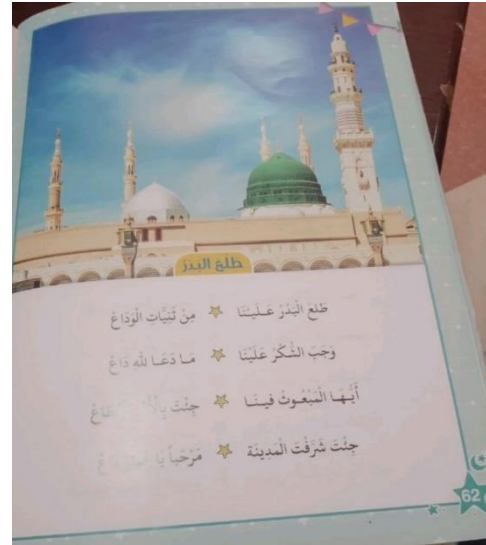 طلع البدر
طَلَعَ الْبَدْرُ عَـلَـيْـنَا مِنْ ثَنِيَّاتِ الْوَدَاعْ
وَجَبَ الشُّكْرُ عَلَيْنَا مَـا دَعَـا لِلَّهِ دَاعْ
أَيُّـهَـا الْمَبْعُـوثُ فِـيـنَـا جِئْتَ
جِئْتَ شَرَّفْتَ الْمَدِينَة مَرْحَباً يَا
62